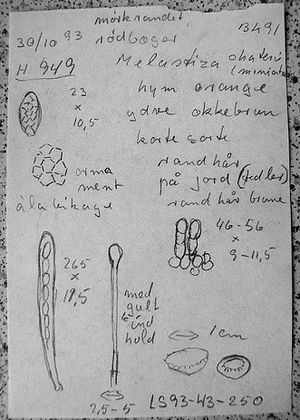 mörkrandet
30/10 93 rödbæger 13491
H 949 Melastiza chateri
(miniata)
23 hym orange
×
10,5 ydre okkebrun
korte sorte
randhår
orna på jord (
ment randhår brune
à la leikage
46-56
×
9-11,5
265
×
17,5
med
gult
ind
hold
1 cm
2,5-5 LS93-43-250